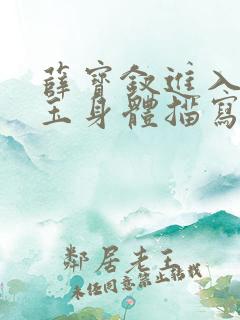 薛寶釵進入
玉身體描寫
鄰居老王
未經同意禁止轉載